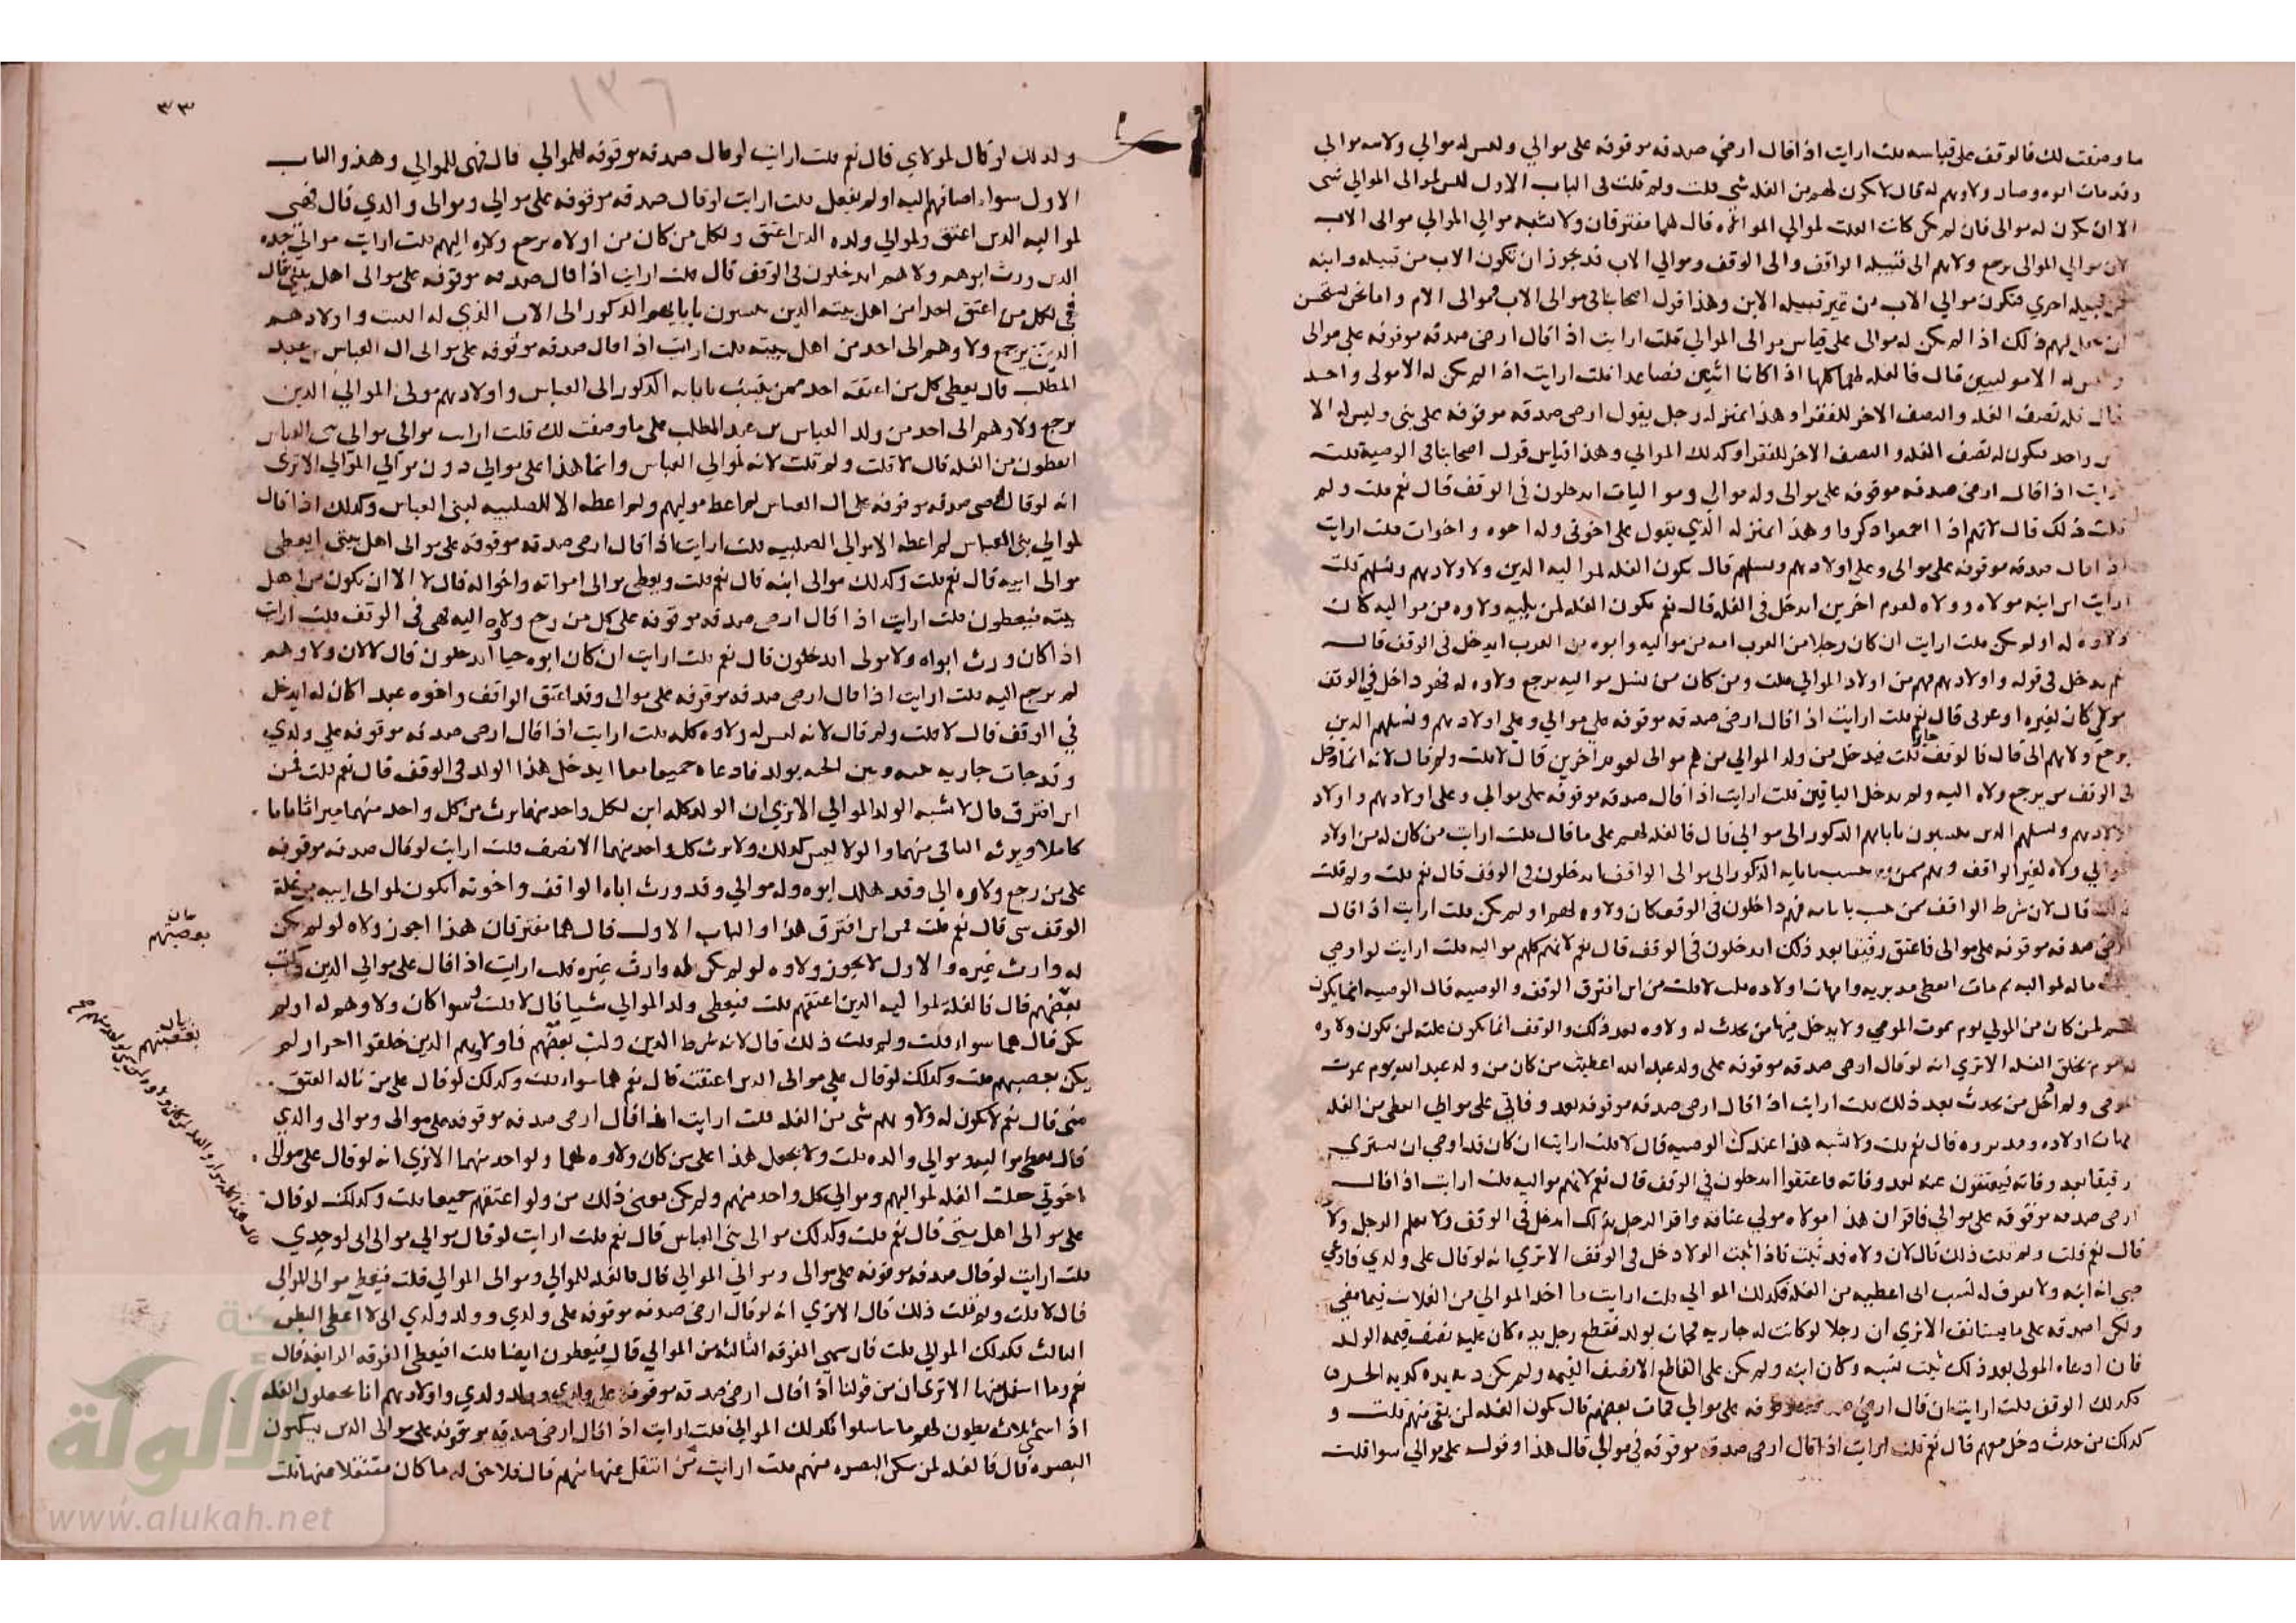 ما وصفت لك فالوقف على قياسه قلت ارايت اذا قال ارضي صدقه موقوفه على موالي وليس له موالي ولابيه موالي
وقد مات ابوه وصار ولاوهم له قال لا يكون لهم من الغله شي قلت ولم قلت في الباب الاول ليس لموالى الموالي شى
الا ان يكون له موالى فان لم يكن كانت الغله لموالي الموالي قال هما مفترقان ولا يشبه موالي الموالي موالى الاب
لان موالي الموالى يرجع ولاهم الى قبيله الواقف والى الوقف وموالي الاب قد يجوز ان تكون الاب من قبيله وابنه
من قبيله اخري فتكون موالي الاب من غير قبيله الابن وهذا قول اصحابنا في موالى الاب وموالى الام واما نحن نستحسن
ان نجعل لهم ذلك اذا لم يكن له موالى على قياس موالى الموالي قلت ارايت اذا قال ارضى صدقه موقوفه على موالى
وليس له الا موليين قال فالغله لهما كلها اذا كانا اثنين فصاعدا قلت ارايت اذا لم يكن له الا مولى واحد
قال فله نصف الغله والنصف الاخر للفقرا وهذا بمنزله رجل يقول ارضى صدقه موقوفه على بنى وليس له الا
ابن واحد فيكون له نصف الغله والنصف الاخر للفقرا وكذلك الموالي وهذا قياس قول اصحابنا في الوصية قلت
ارايت اذا قال ارضى صدقه موقوفه على موالى وله موالي ومواليات ايدخلون في الوقف قال نعم قلت ولم
قلت ذلك قال لانهم اذا اجتمعوا ذكروا وهذا بمنزله الذي يقول على اخوتى وله اخوه واخوات قلت ارايت
اذا قال صدقه موقوفه على موالى وعلى اولادهم ونسلهم قال يكون الغله لمواليه الذين ولاولادهم ونسلهم قلت
ارايت ابن ابنه مولاه وولاه لقوم اخرين ايدخل في الغله قال نعم يكون الغله لمن يليه ولاوه من مواليه كان
ولاوه له او لم يكن قلت ارايت ان كان رجلا من العرب امه من مواليه وابوه من العرب ايدخل في الوقف قال
نعم يدخل في قوله واولادهم فهم من اولاد الموالي قلت ومن كان من نسل مواليه يرجع ولاوه له فهو داخل في الوقف
مولي كان لغيره او عربى قال نعم قلت ارايت اذا قال ارضى صدقه موقوفه على موالي وعلي اولادهم ونسلهم الذين
يرجع ولاهم الى قال فالوقف جايز قلت فيدخل من ولد الموالي من هم موالى لقوم اخرين قال لا قلت ولم قال لانه انما دخل
في الوقف من يرجع ولاه اليه ولم يدخل الباقين قلت ارايت اذا قال صدقه موقوفه على موالي وعلى اولادهم واولاد
اولادهم ونسلهم الذين ينسبون بابايهم الذكور الى موالي قال فالغله لهم على ما قال قلت ارايت من كان له من اولاد
موالي ولاه لغير الواقف وهم ممن ينسب بابايه الذكور الى موالى الواقف ايدخلون في الوقف قال نعم قلت ولم قلت
ذلك قال لان شرط الواقف ممن ينسب بابايه فهم داخلون في الوقف كان ولاوه لهم او لم يكن قلت ارايت اذا قال
ارضى صدقه موقوفه على موالى فاعتق رقيقا بعد ذلك ايدخلون في الوقف قال نعم لانهم كلهم مواليه قلت ارايت لو اوصي
بثلث ماله لمواليه ثم مات ايعطى مدبريه وامهات اولاده قال لا قلت من اين افترق الوقف والوصيه قال الوصيه انما يكون
لمن كان من الموالي يوم يموت الموصي ولا يدخل فيها من يحدث له ولاوه بعد ذلك والوقف انما يكون غلته لمن يكون ولاوه
له يوم يخلق الغله الا تري انه لو قال ارضى صدقه موقوفه على ولد عبد الله اعطيت من كان من ولد عبد الله يوم يموت
الموصى ولم ادخل من يحدث بعد ذلك قلت ارايت اذا قال ارضى صدقه موقوفه بعد وفاتي على موالي ايعطى من الغله
امهات اولاده ومدبروه قال نعم قلت ولا يشبه هذا عندك الوصيه قال لا قلت ارايت ان كان قد اوصى ان يشتري
رقيقا بعد وفاته فيعتقون عنه بعد وفاته فاعتقوا ايدخلون في الوقف قال نعم لانهم مواليه قلت ارايت اذا قال
ارضى صدقه موقوفه على موالي فاقر ان هذا مولاه مولى عتاقه واقر الرجل بذلك ايدخل في الوقف ولا يعلم الرجل ولا
قال نعم قلت ولم قلت ذلك قال لان ولاه قد ثبت فاذا ثبت الولا دخل في الوقف الا تري انه لو قال على ولدي فادعي
صبي انه ابنه ولا يعرف له نسب الى اعطيه من الغله فكذلك الموالي قلت ارايت ما اخذ الموالي من الغلات فيما مضى
ولكن اصدقه على ما يستانف الا تري ان رجلا لو كانت له جاريه فجات بولد فقطع رجل يده كان عليه نصف قيمه الولد
فان ادعاه المولى بعد ذلك ثبت نسبه وكان ابنه ولم يكن على القاطع الا نصف القيمه ولم يكن ديه يده كديه الحر
فكذلك الوقف قلت ارايت ان قال ارضى صدقه موقوفه على موالي فمات بعضهم قال يكون الغله لمن بقى منهم قلت و
كذلك من حدث دخل معهم قال نعم قلت ارايت اذا قال ارضى صدقه موقوفه في موالي قال هذا وقوله على موالي سوا قلت
٣٣
١٣٦
وكذلك لو قال لمولاي قال نعم قلت ارايت لو قال صدقه موقوفه للموالي قال فهى للموالي وهذا والباب
الاول سواء اضافهم اليه او لم يفعل قلت ارايت لو قال صدقه موقوفه على موالي وموالى والدي قال فهى
لمواليه الذين اعتق ولموالي ولده الذين اعتق ولكل من كان من اولاه يرجع ولاوه اليهم قلت ارايت موالي جده
الذين ورث ابوهم ولاهم ايدخلون في الوقف قال قلت ارايت اذا قال صدقه موقوفه على موالى اهل بيتي قال
هى لكل من اعتق احدا من اهل بيته الذين ينسبون بابايهم الذكور الى الاب الذي له البيت واولادهم
الذين يرجع ولاوهم الى احد من اهل بيته قلت ارايت اذا قال صدقه موقوفه على موالى ال العباس بن عبد
المطلب قال يعطى كل من اعتقه احد ممن ينسب بابايه الذكور الى العباس واولادهم مولى الموالي الذين
يرجع ولاوهم الى احد من ولد العباس بن عبد المطلب على ما وصفت لك قلت ارايت موالى موالي بني العباس
ايعطون من الغله قال لا قلت ولم قلت لانه لموالي العباس وانما هذا على موالي دون موالي الموالي الا ترى
انه لو قال ارضى صدقه موقوفه على ال العباس لم اعط مواليهم ولم اعطه الا للصلبيه لبنى العباس وكذلك اذا قال
لموالي بنى العباس لم اعطه الا موالي الصلبيه قلت ارايت اذا قال ارضى صدقه موقوفه على موالى اهل بيتى ايعطى
موالى ابيه قال نعم قلت وكذلك موالى ابنه قال نعم قلت ويعطى موالى امواته واخواله قال لا الا ان يكون من اهل
بيته فيعطون قلت ارايت اذا قال ارضى صدقه موقوفه على كل من رجع ولاوه اليه فهى في الوقف قلت ارايت
اذا كان ورث ابواه ولا مولى ايدخلون قال نعم قلت ارايت ان كان ابوه حيا ايدخلون قال لا لان ولاوهم
لم يرجع اليه قلت ارايت اذا قال ارضى صدقه موقوفه على موالى وقد اعتق الواقف واخوه عبدا كان له ايدخل
في الوقف قال لا قلت ولم قال لانه ليس له ولاوه كله قلت ارايت اذا قال ارضى صدقه موقوفه على ولدي
وقد جات جاريه بينه وبين اخيه بولد فادعاه جميعا معا ايدخل هذا الولد في الوقف قال نعم قلت فمن
اين افترق قال لا يشبه الولد الموالي الا تري ان الولد كله ابن لكل واحد منهما يرث من كل واحد منهما ميراثا تاما
كاملا ويرثه الباقى منهما والولا ليس كذلك ولا يرث كل واحد منهما الا نصف قلت ارايت لو قال صدقه موقوفه
على من رجع ولاوه الي وقد هلك ابوه وله موالي وقد ورث اباه الواقف واخوته ايكون لموالى ابيه من غلة
الوقف شى قال نعم قلت فمن اين افترق هذا والباب الاول قال هما مفترقان هذا اجوز ولاه لو لم يكن
له وارث غيره والاول لا يجوز ولاوه لو لم يكن له وارث غيره قلت ارايت اذا قال على موالي الذين وليت
نعمتهم قال فالغله لمواليه الذين اعتقهم قلت فيعطى ولد الموالي شيا قال لا قلت وسوا كان ولاوهم له او لم
يكن قال هما سواء قلت ولم قلت ذلك قال لانه شرط الذين وليت نعمتهم فاولادهم الذين خلقوا احرار لم
يكن نعمتهم قلت وكذلك لو قال على موالى الذين اعتقت قال نعم هما سواء قلت وكذلك لو قال على من ناله العتق
منى قال نعم لا يكون له ولاولادهم شى من الغله قلت ارايت اذا قال ارضى صدقه موقوفه على موالى وموالى والدي
قال يعطى مواليه وموالي والده قلت ولا يجعل هذا على من كان ولاوه لهما ولواحد منهما الا تري انه لو قال على موالى
اخوتي جعلت الغله لمواليهم وموالي كل واحد منهم ولم يكن معنى ذلك من ولو اعتقهم جميعا قلت وكذلك لو قال
على موالى اهل بيتى قال نعم قلت وكذلك موالى بنى العباس قال نعم قلت ارايت لو قال موالي موالى ابى لوجدي
قلت ارايت لو قال صدقه موقوفه على موالى وموالي الموالي قال فالغله للموالي وموالى الموالي قلت فيعطى موالى الموالي
قال لا قلت ولم قلت ذلك قال الا تري انه لو قال ارضى صدقه موقوفه على ولدي وولد ولدي انى لا اعطى البطن
الثالث فكذلك الموالي قلت فان سمى الفرقه الثالثه من الموالي قال فيعطون ايضا قلت افيعطى الفرقه الرابعه قال
نعم وما اسفل منها الا ترى ان من قولنا اذا قال ارضى صدقه موقوفه على ولدي وولد ولدي واولادهم انا نجعلون الغله
اذا سمى ثلاثه بطون لهم ما تناسلوا فكذلك الموالي قلت ارايت اذا قال ارضى صدقه موقوفه على موالى الذين يسكنون
البصره قال فالغله لمن سكن البصره منهم قلت ارايت من انتقل عنها منهم قال فلا حق له ما كان منتقلا عنها قلت
الألوكة
www.alukah.net